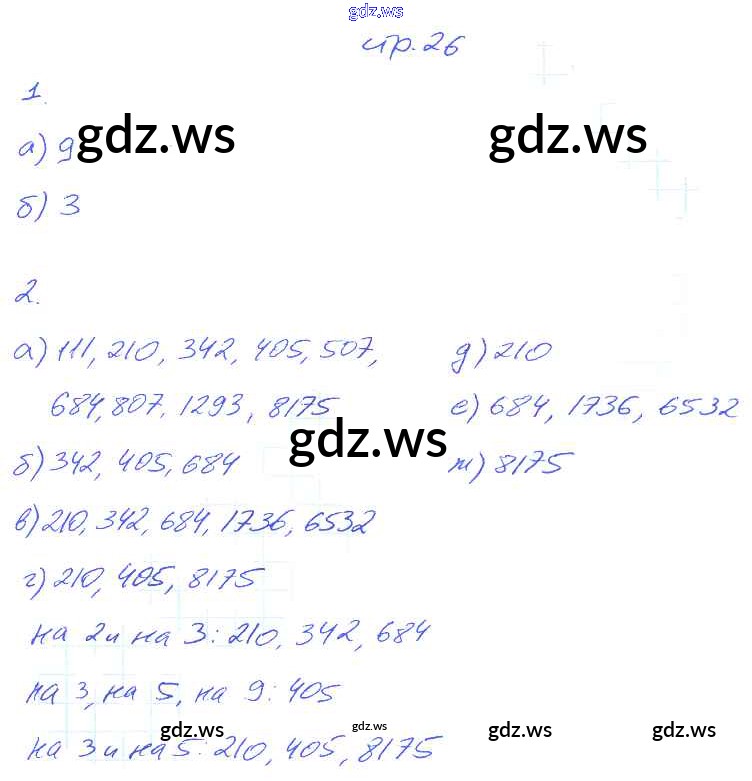 gdz.ws
стр. 26
1.
а) 9
gdz.ws
gdz.ws
б) 3
2.
а) 111, 210, 342, 405, 507,
684, 807, 1293, 8175
б) 342, 405, 684
в) 210, 342, 684, 1736, 6532
г) 210, 405, 8175
на 2 и на 3: 210, 342, 684
на 3, на 5, на 9: 405
на 3 и на 5: 210, 405, 8175
д) 210
е) 684, 1736, 6532
ж) 8175
gdz.ws
gdz.ws
gdz.ws
gdz.ws
gdz.ws